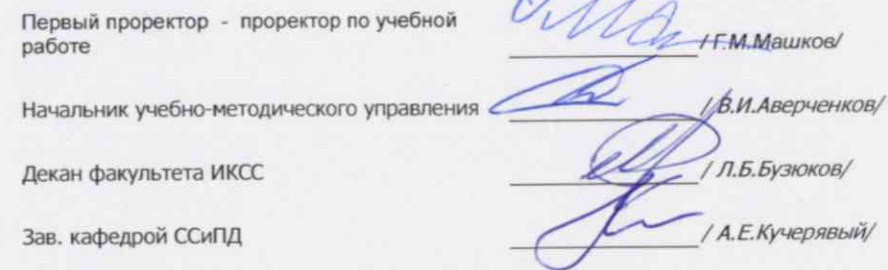 Первый проректор - проректор по учебной
работе /Г.М.Машков/
Начальник учебно-методического управления /В.И.Аверченков/
Декан факультета ИКСС / Л.Б.Бузюков/
Зав. кафедрой ССиПД / А.Е.Кучерявый/